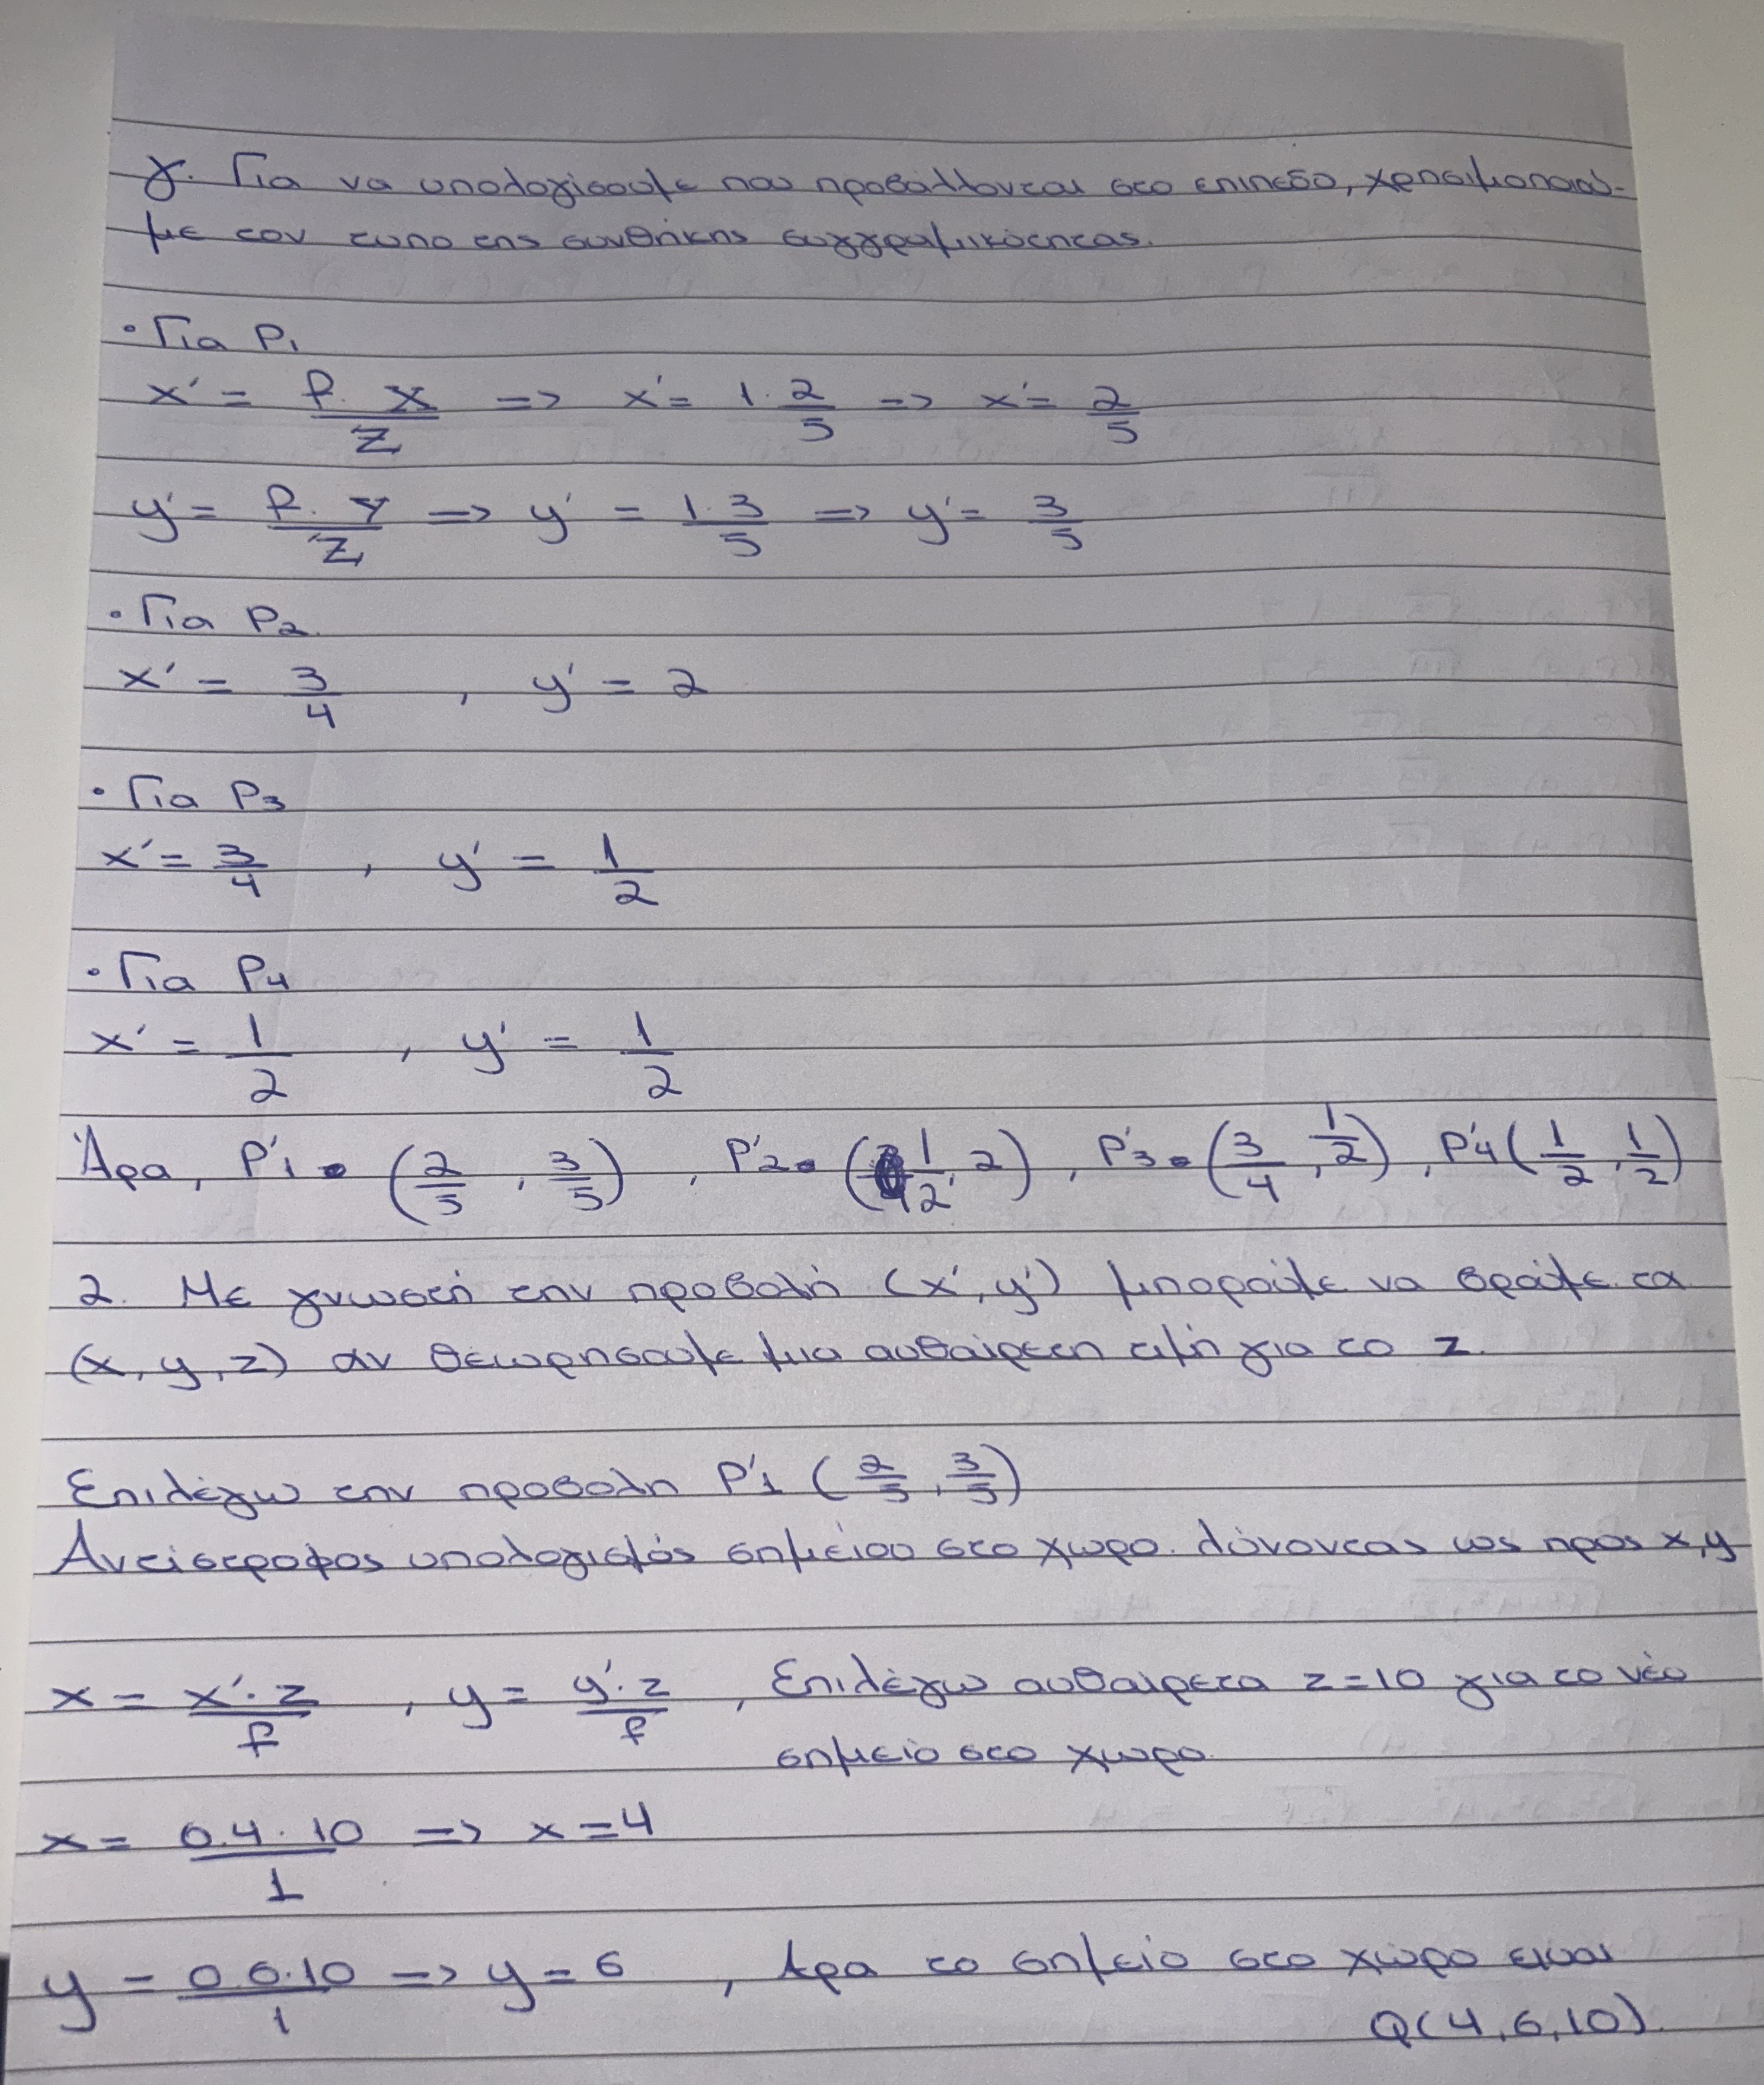 γ. Για να υπολογίσουμε που προβάλλονται στο επιπεδο, χρησιμοποιού-
με τον τυπο της συνθήκης συγγραμικότητας.
• Για P1
x' = f. x/z => x' = 1. 2/5 => x' = 2/5
y' = f. y/z => y' = 1.3/5 => y' = 3/5
• Για P2.
x' = 3/4 , y' = 2
• Για P3
x' = 3/4 , y' = 1/2
• Για P4
x' = 1/2 , y' = 1/2
Άρα, P'1 (2/5 , 3/5) , P'2 (1/2, 2) , P'3 (3/4 , 1/2) , P'4 (1/2 , 1/2)
2. Με γνωστή την προβολή (x', y') μπορούμε να βρούμε τα
(x, y, z) αν θεωρησουμε μια αυθαίρετη τιμή για το z.
Επιλέγω την προβολη P'1 (2/5 , 3/5)
Αντίστροφος υπολογισμός σημείου στο χωρο. λύνοντας ως προς x, y
x = x'. z/f , y = y'. z/f , Επιλέγω αυθαίρετα z=10 για το νέο
σημείο στο χωρο.
x = 0.4 . 10/1 => x = 4
y = 0.6.10/1 => y = 6 , Άρα το σημείο στο χώρο ειναι
Q(4, 6, 10).